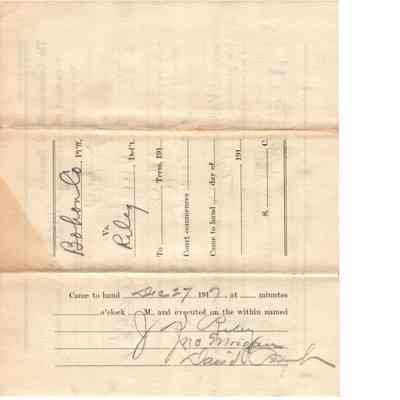 Bohon Co Pl'ff.
Vs.
Riley Def't.
To Term, 191
Court commences
Came to hand day of
191
S. C.
Came to hand Dec 27 1917, at minutes
o'clock M., and executed on the within named
J R Riley
Jno Morgan
David